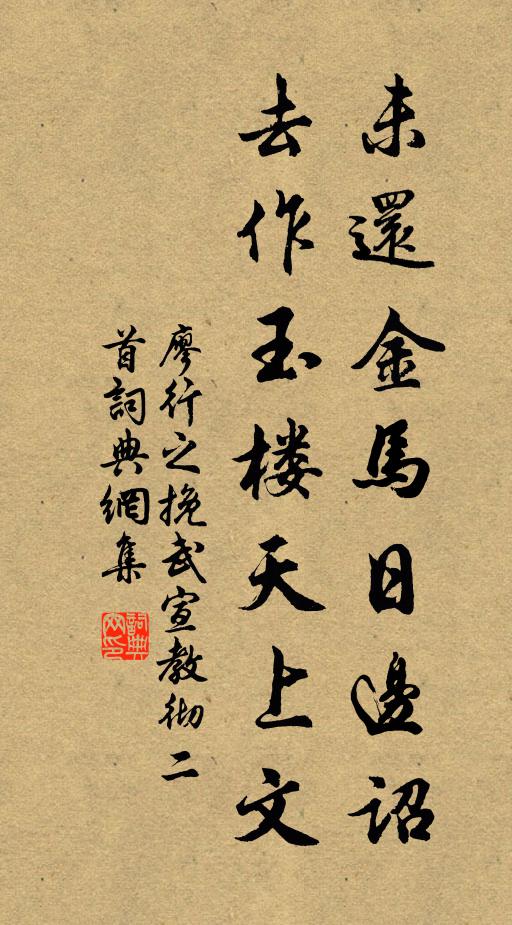 未還金馬日邊詔
去作玉楼天上文
廖行之挽武宣教彻二
首詞典網集
詞典网印